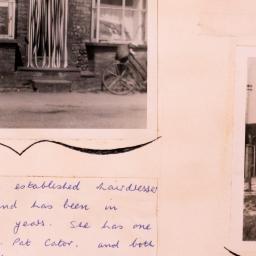 established hairdresser
and has been in
years. She has one
Pat Cator. and both